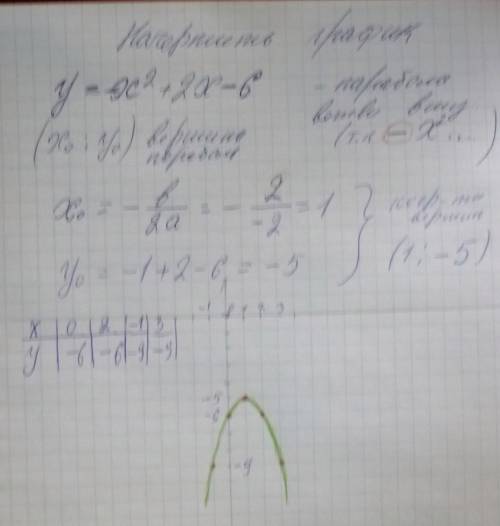 Начертить график
y = -x² + 2x - 6 - парабола
ветви вниз
(т.к. - x²...)
(x₀; y₀) вершина
параболы
x₀ = - b/2a = - 2/-2 = 1
y₀ = -1 + 2 - 6 = -5
коор-ты
вершин
(1; -5)
x | 0 | 2 | -1 | 3
y | -6 | -6 | -9 | -9
-1 1 2 3
-5
-6
-9